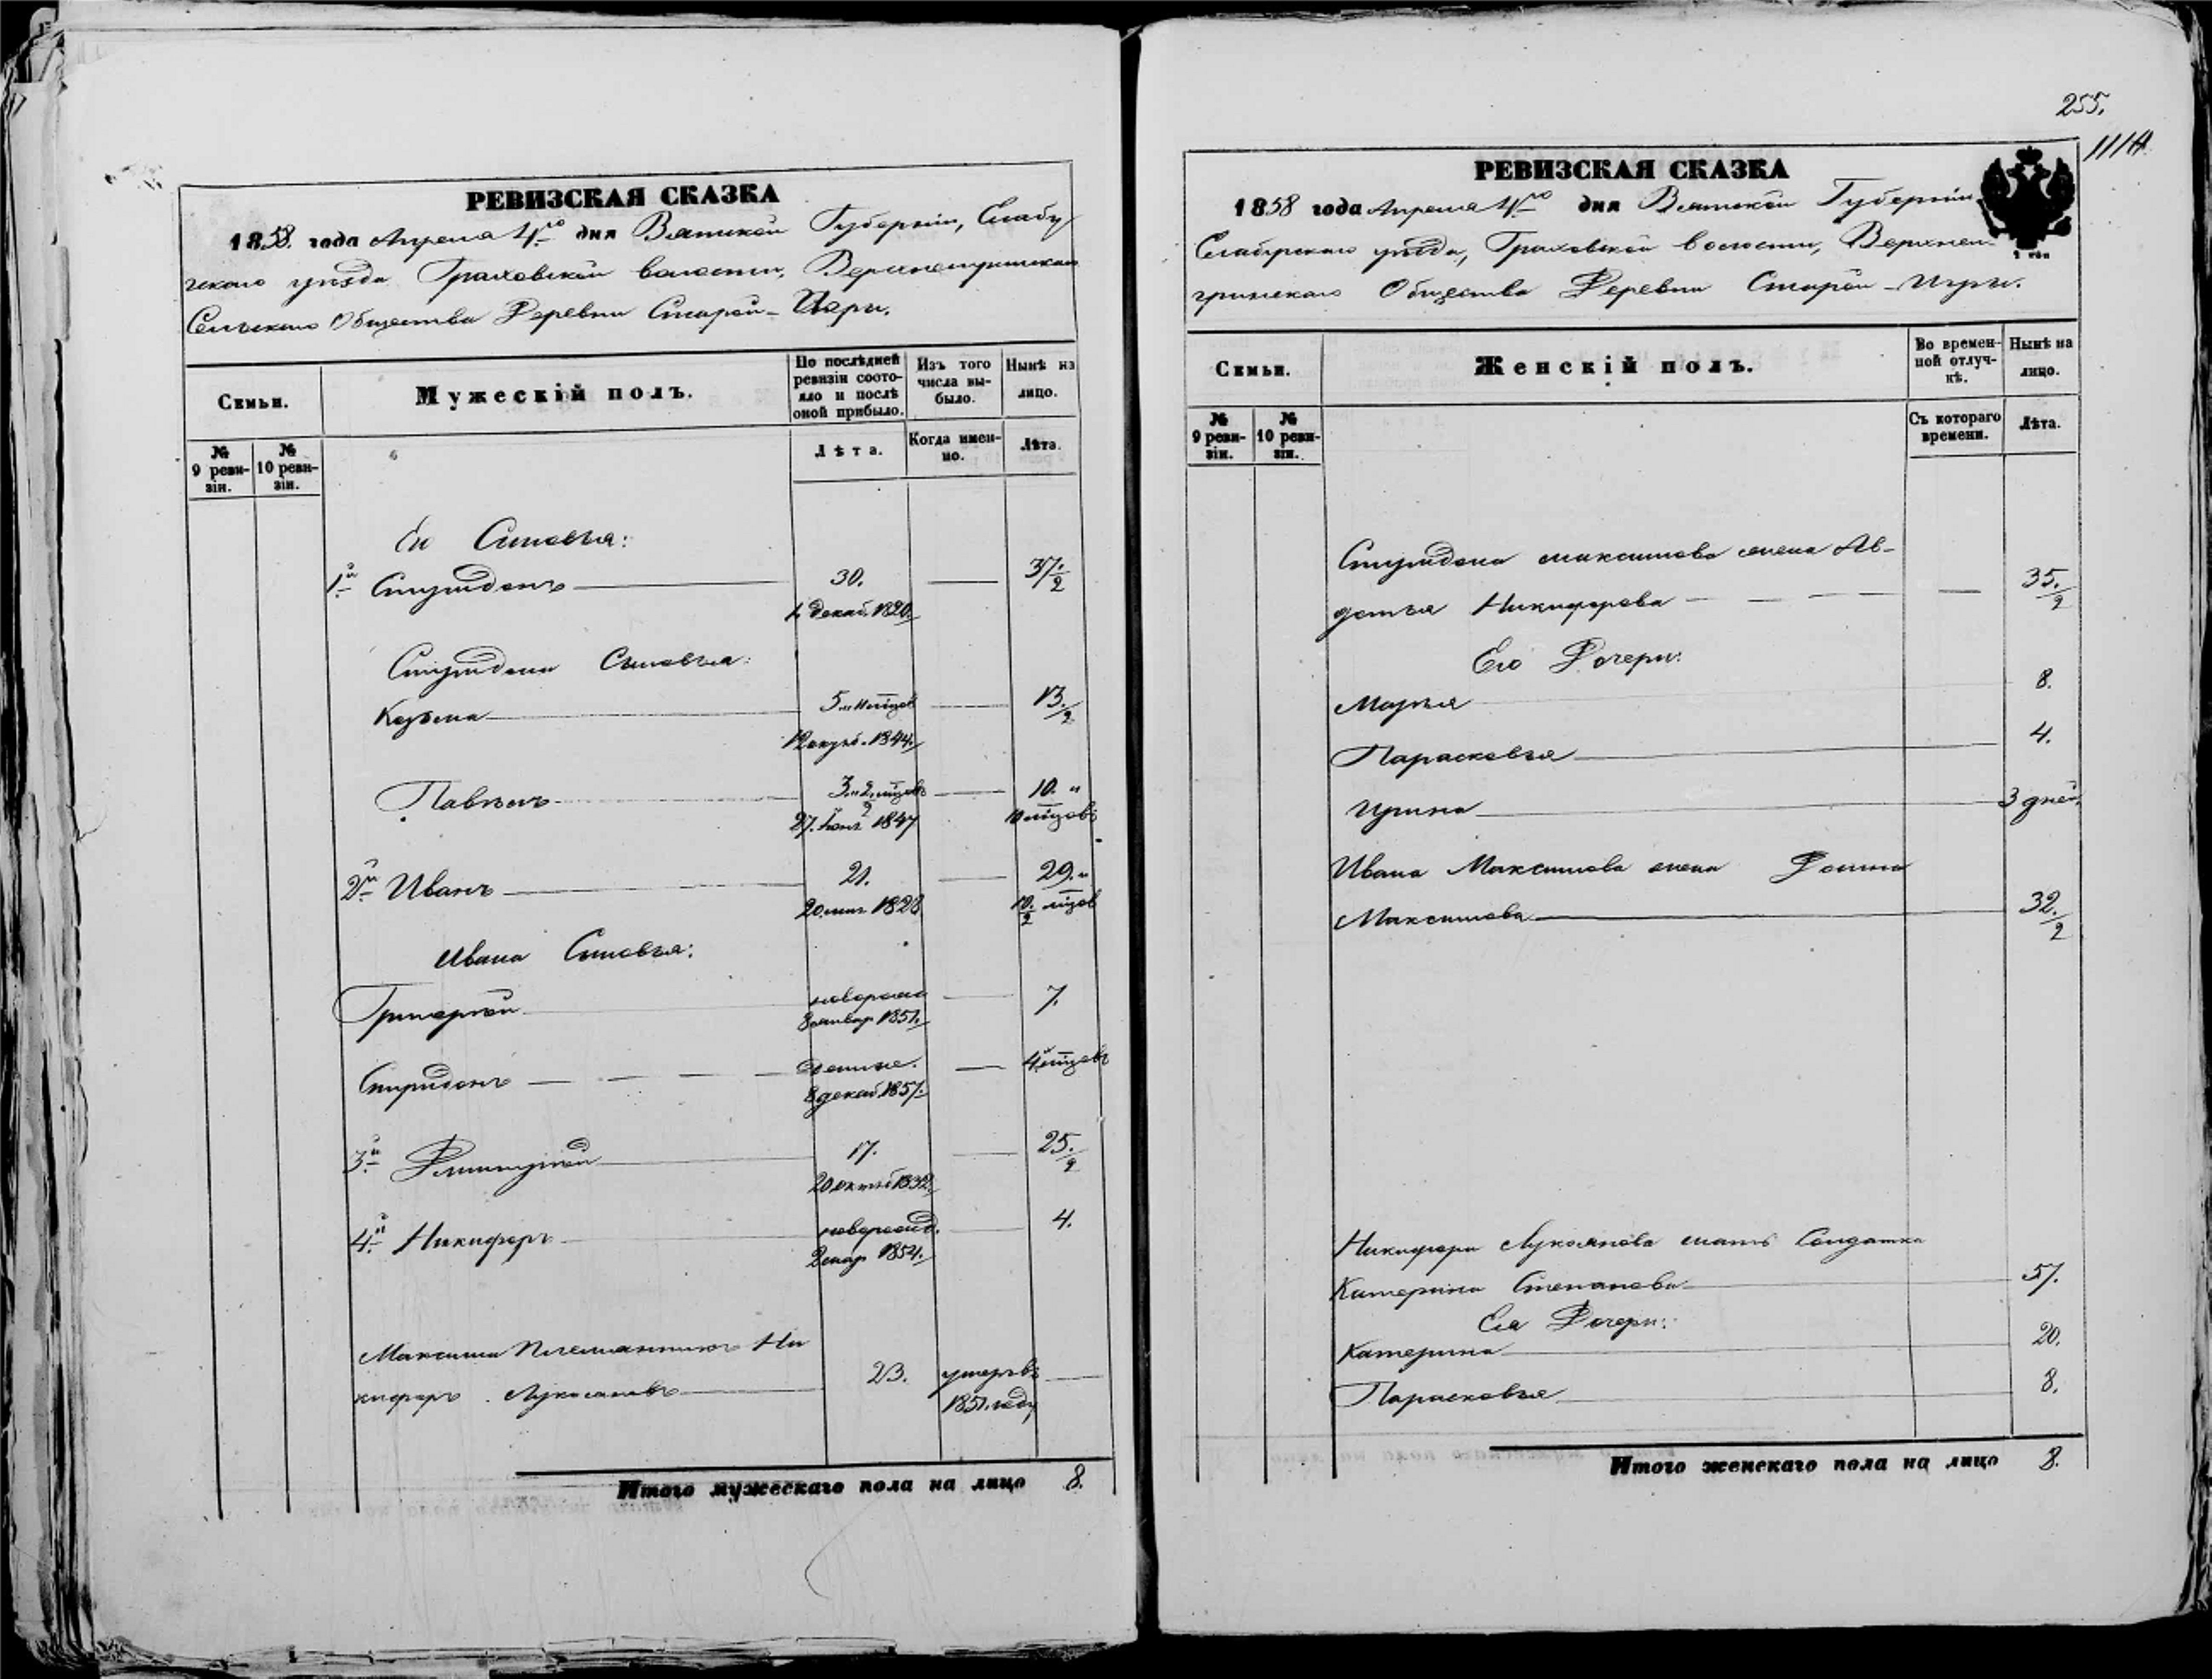 255.
1114
РЕВИЗСКАЯ СКАЗКА
1858. года Апреля 4го дня Вятской Губернiи, Елабу
жскаго уѣзда Граховской волости, Верхнеигринскаго
Сельскаго Общества Деревни Старой-Игры.
Семьи.
Мужескiй полъ.
По послѣдней ревизiи состояло и послѣ оной прибыло.
Изъ того числа выбыло.
Нынѣ на лицо.
№ 9 ревизiи.
№ 10 ревизiи.
Лѣта.
Когда именно.
Лѣта.
Его Сыновья:
1й Спиридонъ 30. 37. 1/2
1 декаб. 1820.
Спиридона Сыновья:
Козьма 5 13. 1/2
1844.
Павелъ 3 10. "
27. 1847 10 мцовъ
2й Иванъ 21. 29. "
20 1828 10 1/2 мцов
Ивана Сыновья:
Григорiй новорожд 7.
8 январ 1851.
Спиридонъ 4 мцовъ
8 декаб 1857.
3й Дмитрiй 17. 25. 1/2
20 октяб 1832.
4й Никифоръ новорожд. 4.
1854.
Максима племянникъ Ни
кифоръ Лукояновъ 23. умеръ въ
1851 году
Итого мужескаго пола на лицо 8.
РЕВИЗСКАЯ СКАЗКА
1858 года Апреля 4го дня Вятской Губернiи
Елабужскаго уѣзда, Граховской волости, Верхнеи
гринскаго Общества Деревни Старой-Игры.
Семьи.
Женскiй полъ.
Во временной отлучкѣ.
Нынѣ на лицо.
№ 9 ревизiи.
№ 10 ревизiи.
Съ котораго времени.
Лѣта.
Спиридона Максимова жена Ав-
дотья Никифорова 35. 1/2
Его Дочери:
Марья 8.
Парасковья 4.
Ирина 3 дней.
Ивана Максимова жена
Максимова 32. 1/2
Никифора Лукоянова мать Солдатка
Катерина Степанова 57.
Ея Дочери:
Катерина 20.
Парасковья 8.
Итого женскаго пола на лицо 8.